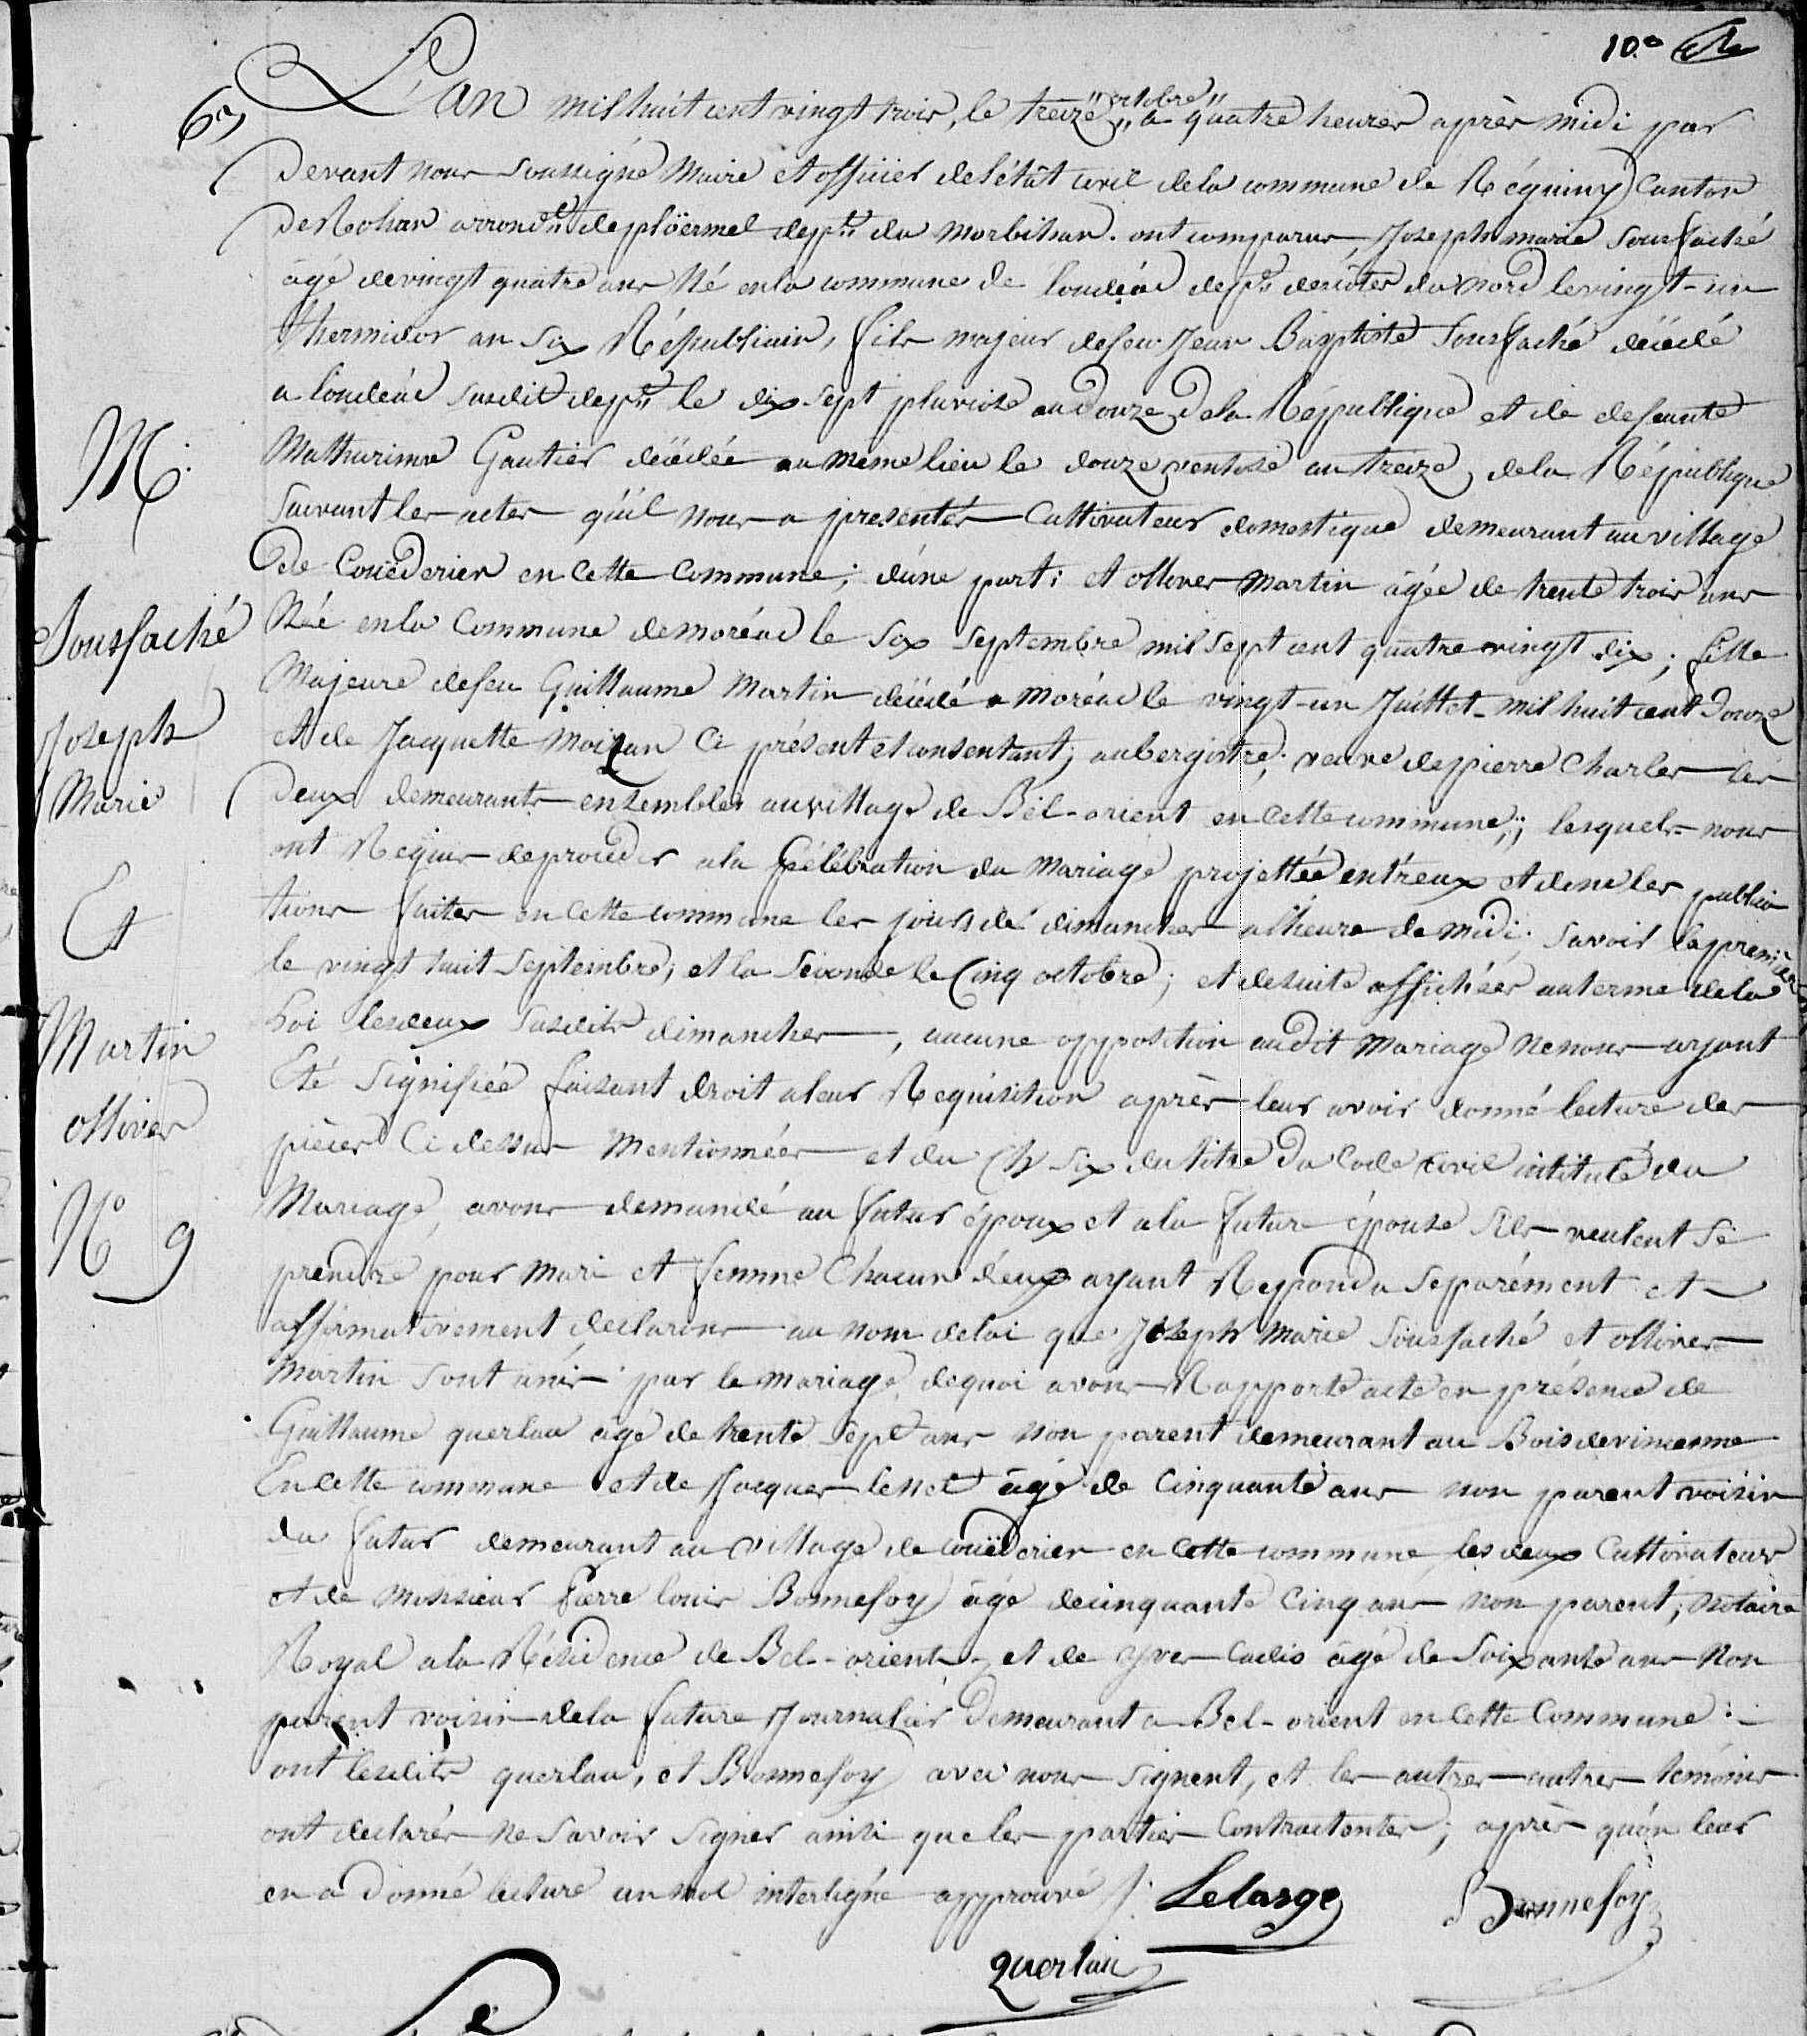 10e
L'an mil huit cent vingt trois, le treize "octobre" a quatre heures après midi par
devant nous soussigné Maire et officier de l'état civil de la commune de Réguiny Canton
de Rohan arrondt de ploërmel dept du Morbihan. ont comparus, Joseph marie Sousfaché
âgé de vingt quatre ans Né en la commune de loudéac dept des côtes du nord le vingt-un
thermidor an Six Républicain, fils majeur de feu Jean Baptiste Sousfaché décédé
a loudéac susdit dept le dix sept pluviose an douze de la République et de defeunte
Mathurinne Gautier décédée au même lieu le douze ventose an treize, de la République
Suivant les actes qu'il nous a presentés Cultivateur domestique demeurant au village
de Couëderien en Cette Commune; d'une part; et ollives Martin âgée de trente trois ans
Née en la Commune de moréac le Six Septembre mil sept cent quatre vingt dix; fille
Majeure de feu Guillaume Martin décédé a Moréac le vingt-un Juillet mil huit cent Douze
et de Jacquette Moizan Ci présent et consentant; aubergiste; veuve de pierre Charles les
Deux demeurants ensembles au village de Bel-orient en Cette commune; lesquels nous
ont Requis de proceder a la Célébration du Mariage projettée entr'eux et dont les publica
tions faites en cette commune les jours de dimanches a l'heure de midi; Savoir la première
le vingt huit Septembre; et la Seconde le Cinq octobre; et de suite affichées au terme de la
Loi les deux susdits dimanches, aucune opposition audit Mariage Ne nous ayant
Eté Signifiée faisant droit a leur Requisition après leur avoir donné lecture des
pièces Ci dessus Mentionnées et du Ch Six du titre du Code Civil intitulé du
Mariage, avons demandé au futur époux et a la futur épouse S'ils veulent Se
prendre pour Mari et femme Chacun d'eux ayant Repondu Séparément et
affirmativement, declarons au nom de loi que Joseph Marie Sousfaché et ollives
Martin Sont unis par le mariage, de quoi avons Rapporté acte en présence de
Guillaume querlau âgé de trente Sept ans Non parent demeurant au Bois de vincenne
En cette commune et de Jacques lenet âgé de Cinquante ans non parent voisin
du futur demeurant au village de Couëderien en Cette commune, les deux Cultivateurs
et de Monsieur Pierre louis Bonnefoy âgé de cinquante Cinq ans Non parent; Notaire
Royal a la Résidence de Bel-orient, et de yves Cadio âgé de Soixante ans Non
parent voisin de la future Journalier Demeurant a Bel-orient en Cette Commune:
ont lesdits querlau, et Bonnefoy avec nous Signent, et les autres autres témoins
ont declarés Ne Savoir Signer ainsi que les parties Contractantes; après qu'on leur
en a Donné lecture un mot interligné approuvé
Lelarge
Bonnefoy
querlau
M.
Sousfaché
Joseph
Marie
Et
Martin
ollives
No 9